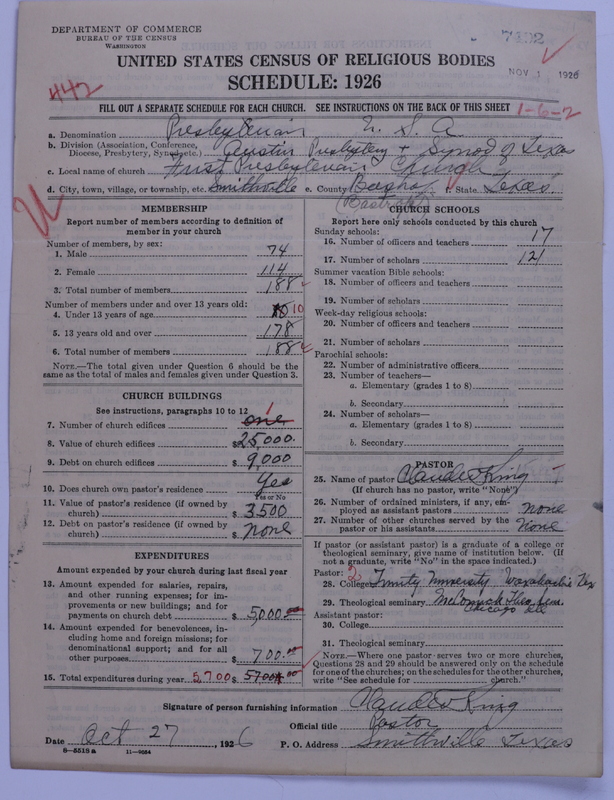 DEPARTMENT OF COMMERCE
BUREAU OF THE CENSUS
WASHINGTON
7492
UNITED STATES CENSUS OF RELIGIOUS BODIES
NOV 1 1926
SCHEDULE: 1926
442
FILL OUT A SEPARATE SCHEDULE FOR EACH CHURCH. SEE INSTRUCTIONS ON THE BACK OF THIS SHEET
1-6-2
a. Denomination Presbyterian U. S. A
b. Division (Association, Conference, Diocese, Presbytery, Synod, etc.) Austin Presbytery + Synod of Texas
c. Local name of church First Presbyterian Church
d. City, town, village, or township, etc. Smithville e. County f. State Texas
(Bastrop)
MEMBERSHIP
Report number of members according to definition of member in your church
Number of members, by sex:
1. Male 74
2. Female 114
3. Total number of members 188
Number of members under and over 13 years old:
4. Under 13 years of age 10 10
5. 13 years old and over 178
6. Total number of members 188
NOTE.—The total given under Question 6 should be the same as the total of males and females given under Question 3.
CHURCH BUILDINGS
See instructions, paragraphs 10 to 12
7. Number of church edifices one 1
8. Value of church edifices $25,000.
9. Debt on church edifices $9,000
10. Does church own pastor's residence Yes
Yes or No
11. Value of pastor's residence (if owned by church) $3,500
12. Debt on pastor's residence (if owned by church) $none
EXPENDITURES
Amount expended by your church during last fiscal year
13. Amount expended for salaries, repairs, and other running expenses; for improvements or new buildings; and for payments on church debt $5000.00
14. Amount expended for benevolences, including home and foreign missions; for denominational support; and for all other purposes $700.00
15. Total expenditures during year 5700 $5700.00
CHURCH SCHOOLS
Report here only schools conducted by this church
Sunday schools:
16. Number of officers and teachers 17
17. Number of scholars 121
Summer vacation Bible schools:
18. Number of officers and teachers
19. Number of scholars
Week-day religious schools:
20. Number of officers and teachers
21. Number of scholars
Parochial schools:
22. Number of administrative officers
23. Number of teachers—
a. Elementary (grades 1 to 8)
b. Secondary
24. Number of scholars—
a. Elementary (grades 1 to 8)
b. Secondary
PASTOR
25. Name of pastor Claude W King
(If church has no pastor, write "None")
26. Number of ordained ministers, if any, employed as assistant pastors none
27. Number of other churches served by the pastor or his assistants None
If pastor (or assistant pastor) is a graduate of a college or theological seminary, give name of institution below. (If not a graduate, write "No" in the space indicated.)
Pastor: 2
28. College Trinity University Waxahachie Tex
29. Theological seminary McCormick Theo. Sem. Chicago Ill
Assistant pastor:
30. College
31. Theological seminary
NOTE.—Where one pastor serves two or more churches, Questions 28 and 29 should be answered only on the schedule for one of the churches; on the schedules for the other churches, write "See schedule for church."
Signature of person furnishing information Claude W King
Official title Pastor
Date Oct 27, 1926 P. O. Address Smithville Texas
8-5518a 11-9664